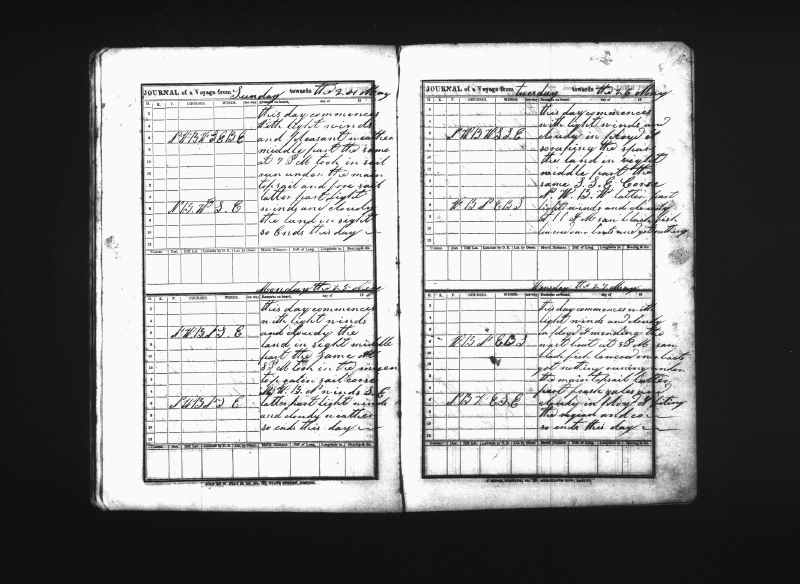 JOURNAL of a Voyage from Sunday towards the 24 May
H. K. F. COURSES. WINDS. Remarks on board, day of 18
this day commences
With light winds
N W B W S E B E and Pleasant weather
middle part the same
at 7 P M took in sail
run under the main
topsail and fore sail
latter part light
N B W S E winds and cloudy
the land in sight
so Ends this day
Course. Dist. Diff. Lat. Latitude by D. R. Lat. by Obser. Merid. Distance. Diff. of Long. Longitude in. Bearing & dis.
Monday the 25 May
H. K. F. COURSES. WINDS. Remarks on board, day of 18
this day commences
with light winds
S E and cloudy the
land in sight middle
part the same at
5 P M took in the mizen
top galen sail corse
N W B N winds S E
S E latter part light winds
and cloudy weather
so ends this day
Course. Dist. Diff. Lat. Latitude by D. R. Lat. by Obser. Merid. Distance. Diff. of Long. Longitude in. Bearing & dis.
STATE STREET, BOSTON.
JOURNAL of a Voyage from tuesday towards the 26 May
H. K. F. COURSES. WINDS. Remarks on board, day of 18
this day commences
with light winds and
N W B W S S E cloudy in ploy d at
scraping the spar
the land in sight
middle part the
same S S E Corse
N W B W latter part
W B N E B S light winds and cloudy
at 1 P M saw black fish
lowered our boats and got nothing
Course. Dist. Diff. Lat. Latitude by D. R. Lat. by Obser. Merid. Distance. Diff. of Long. Longitude in. Bearing & dis.
the 27 May
H. K. F. COURSES. WINDS. Remarks on board, day of 18
this day commences with
light winds and cloudy
in ploy d mending the
W B N E B S boat at 5 P M saw
black fish lowered our boats
got nothing running under
the main topsail latter
part fresh gales and
E S E cloudy in ploy d
the
so ends this day
Course. Dist. Diff. Lat. Latitude by D. R. Lat. by Obser. Merid. Distance. Diff. of Long. Longitude in. Bearing & dis.